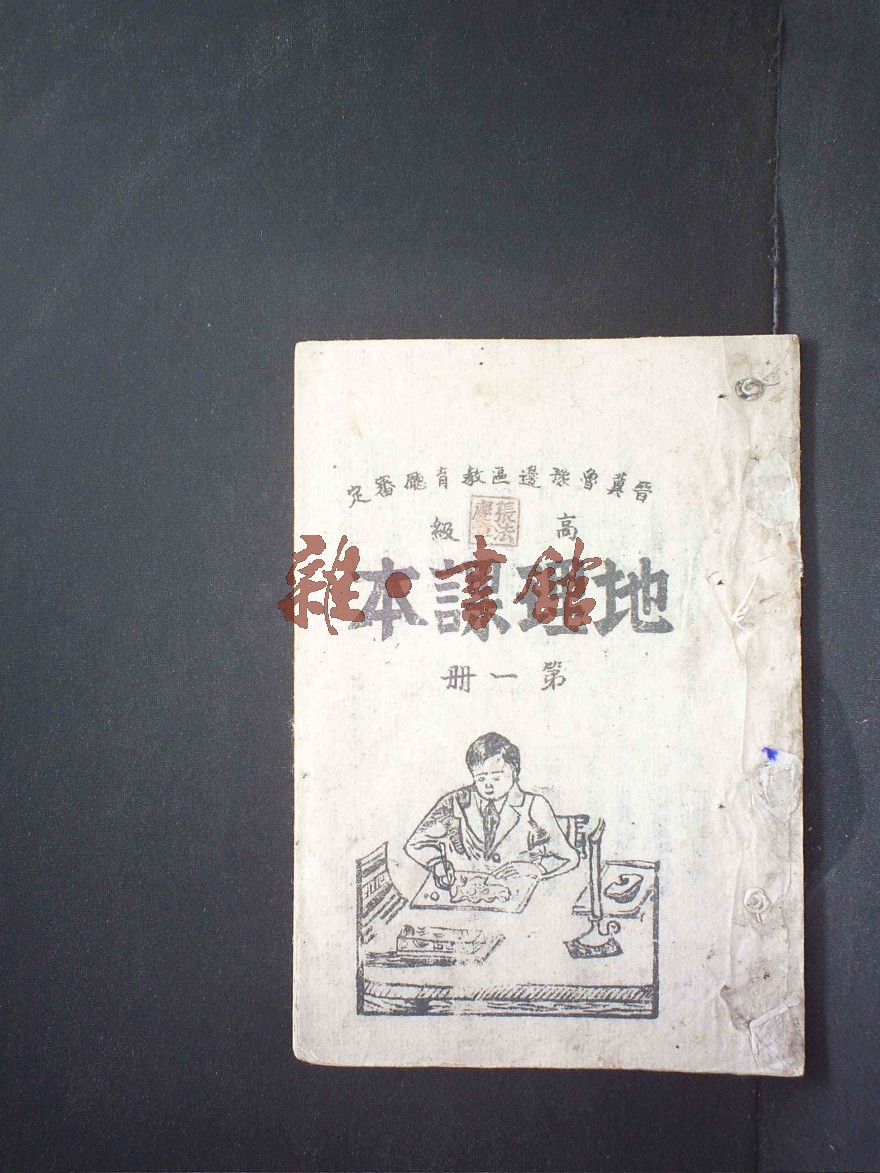 晉冀魯豫邊區教育廳審定
高級
地理課本
第一册
雜·書館
張法